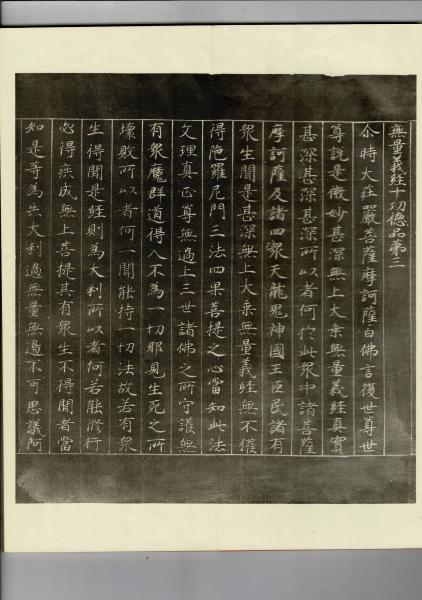 無量義經十功德品第三
尒時大莊嚴菩薩摩訶薩白佛言復世尊世
尊說是微妙甚深無上大乘無量義經真實
甚深甚深甚深所以者何於此衆中諸菩薩
摩訶薩及諸四衆天龍鬼神國王臣民諸有
衆生聞是甚深無上大乘無量義經無不獲
得陁羅尼門三法四果菩提之心當知此法
文理真正尊無過上三世諸佛之所守護無
有衆魔群道得入不為一切邪見生死之所
壞敗所以者何一聞能持一切法故若有衆
生得聞是經則為大利所以者何若能脩行
必得疾成無上菩提其有衆生不得聞者當
知是等為失大利過無量無邊不可思議阿